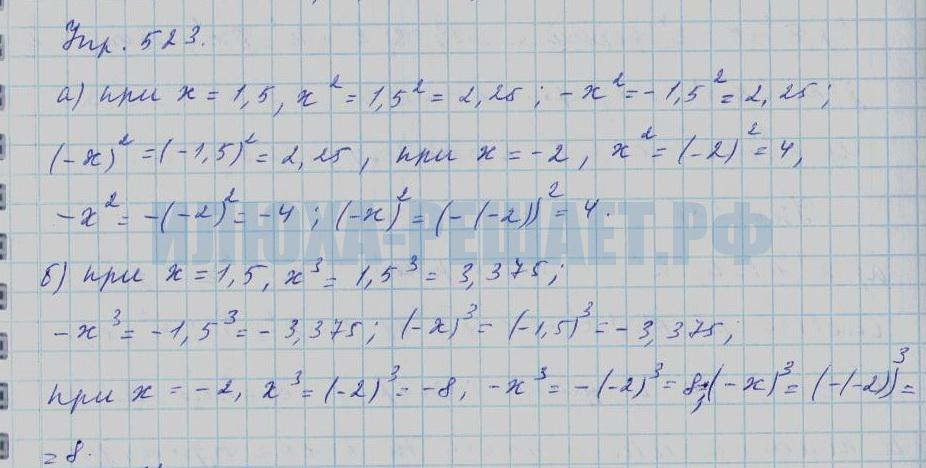 Упр. 523.
а) при x = 1,5, x² = 1,5² = 2,25; -x² = -1,5² = 2,25;
(-x)² = (-1,5)² = 2,25, при x = -2, x² = (-2)² = 4,
-x² = -(-2)² = -4; (-x)² = (-(-2))² = 4.
ИЛЮХА-РЕШАЕТ.РФ
б) при x = 1,5, x³ = 1,5³ = 3,375;
-x³ = -1,5³ = -3,375; (-x)³ = (-1,5)³ = -3,375;
при x = -2, x³ = (-2)³ = -8; -x³ = -(-2)³ = 8; (-x)³ = (-(-2))³ =
= 8.